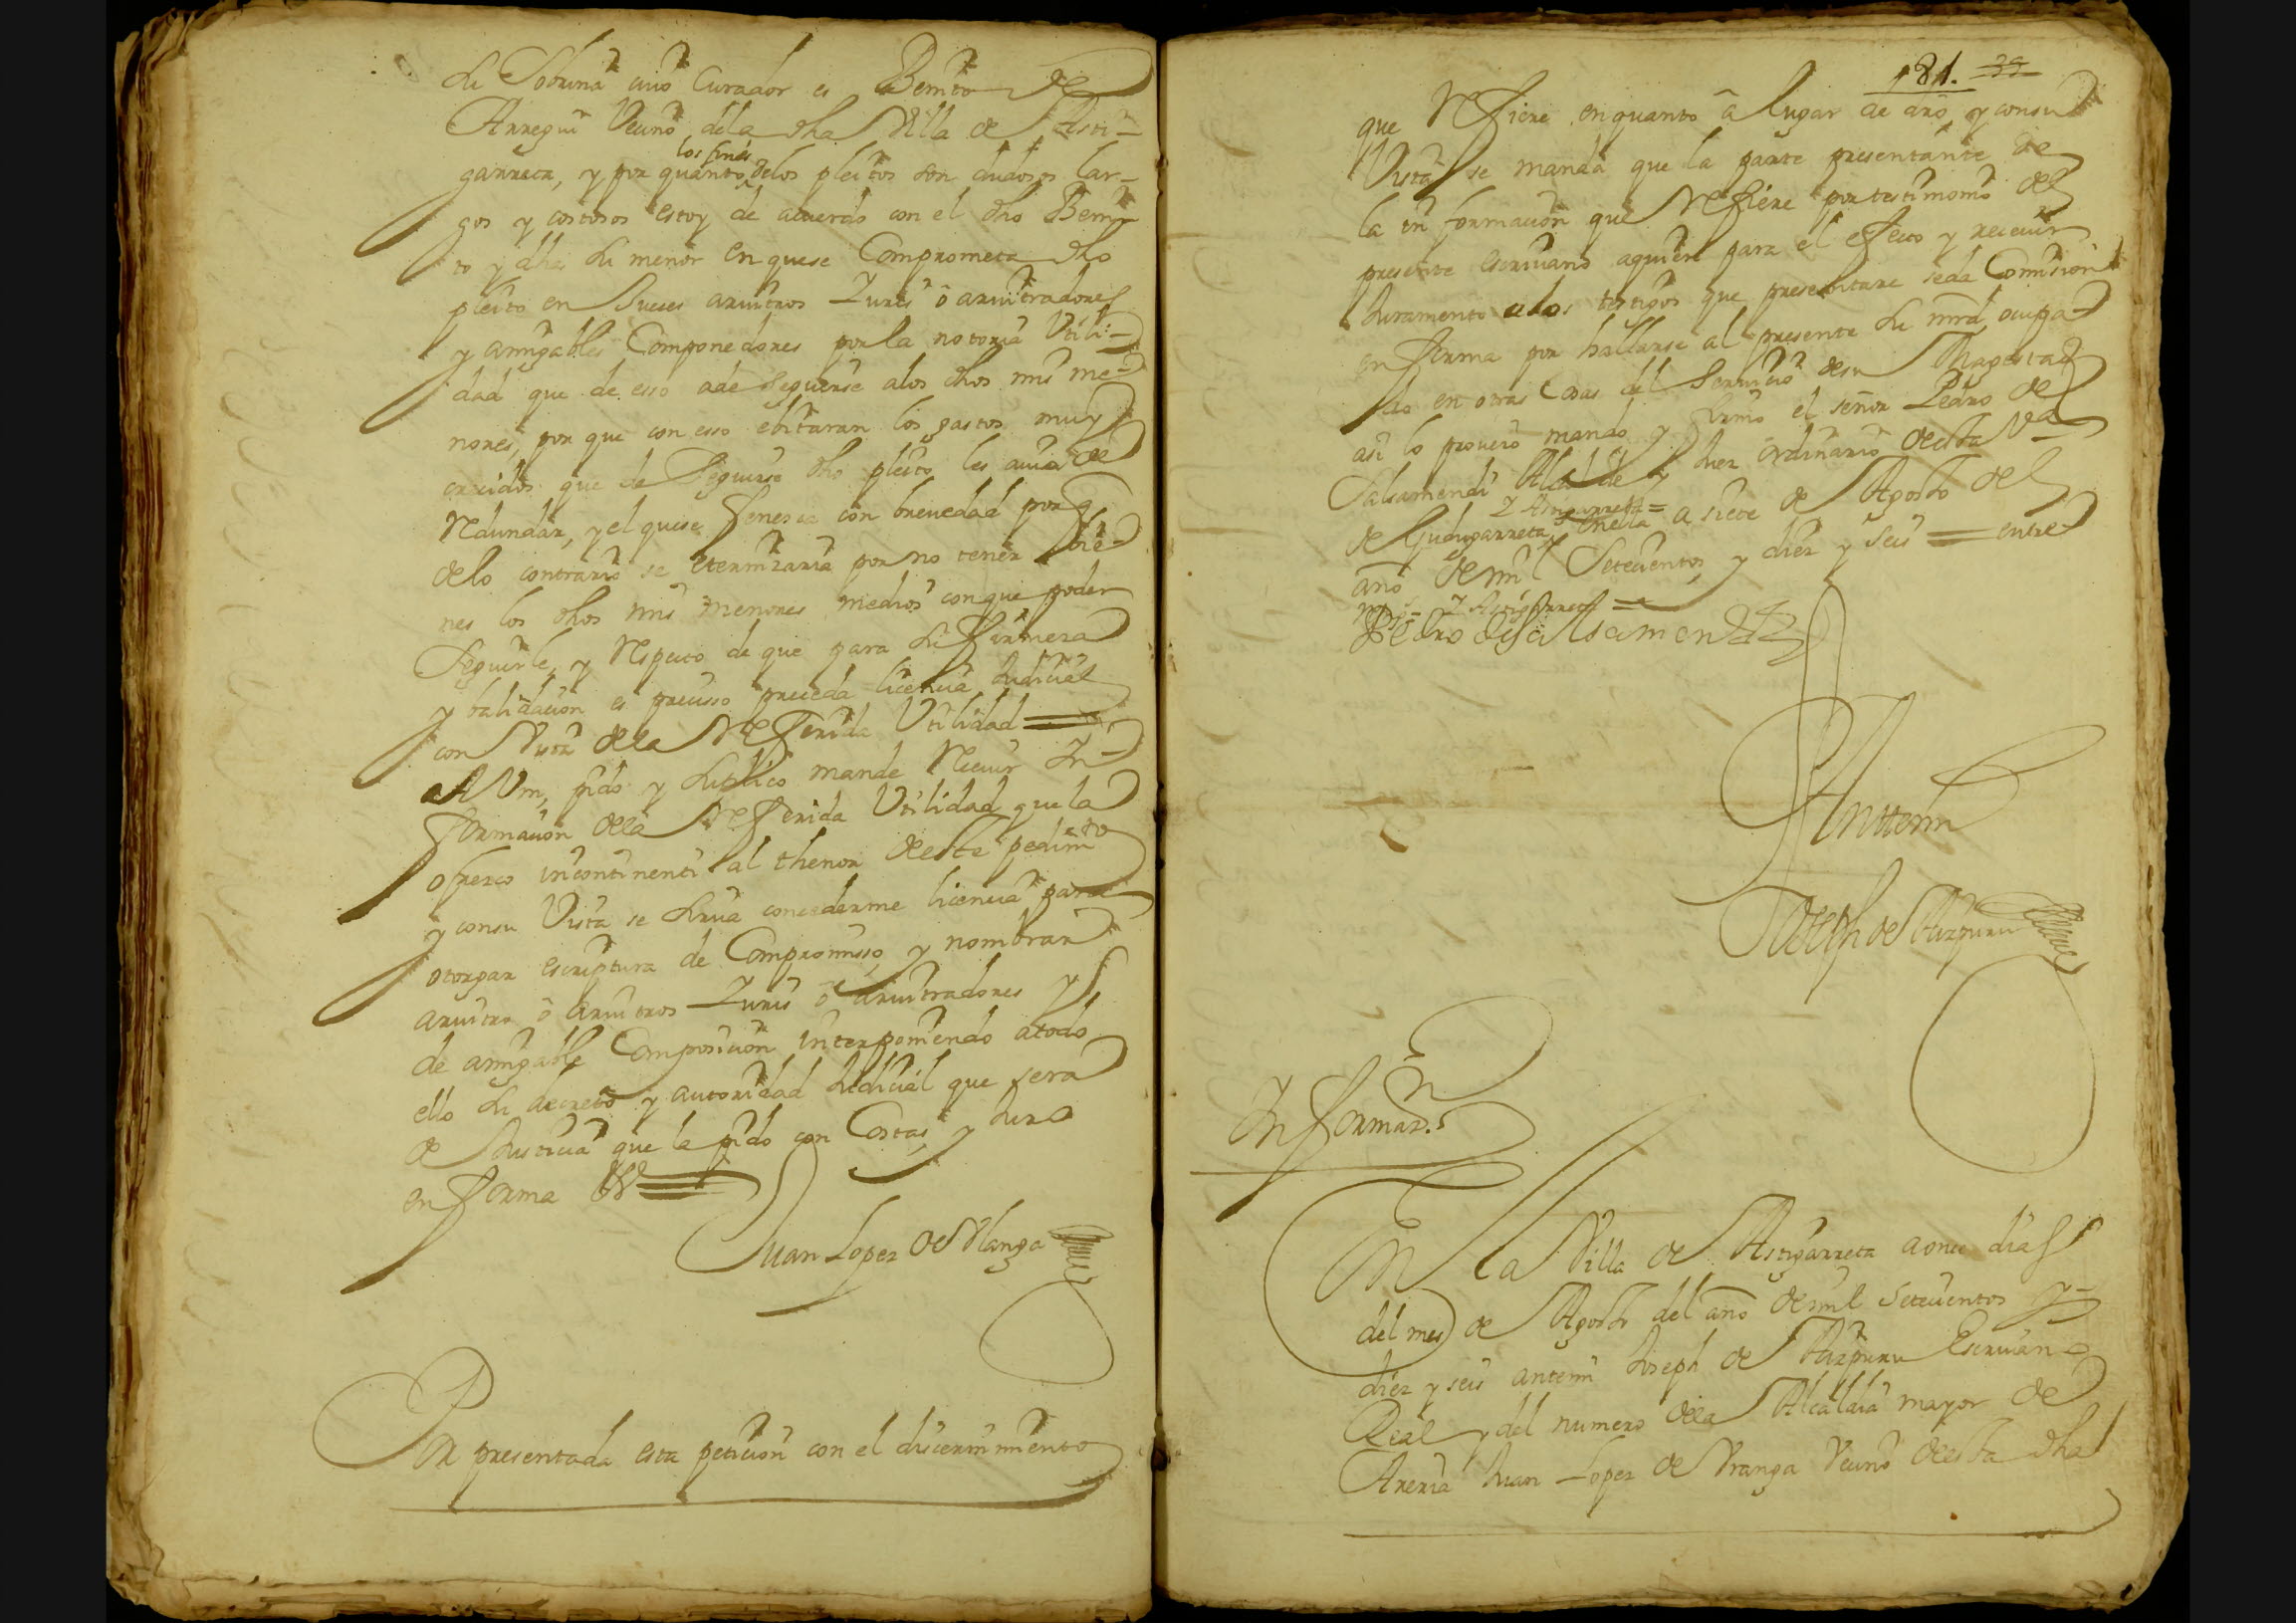 su sobrina cuio Curador es Benito de
Arregui Vecino dela dha Villa de Asti-
garreta, y por quanto los fines delos pleitos son dudosos lar-
gos y costosos estoy de acuerdo con el dho Beni-
to y dha su menor en que se Comprometa dho
pleito en Jueces arvitros Juris ô arvitradores
y amigables Componedores por la notoria Vtili-
dad que de esso ade seguirse alos dhos mis me-
nores, por que con esso ebitaran los gastos muy
crecidos que de seguirse dho pleito les avia de
Redundar, y el que se fenesca con brevedad por q
delo contrario se eternizaria por no tener bie-
nes los dhos mis menores medios con que poder
seguirle, y Respecto de que para su firmeza
y balidacion es precisso preceda licencia Judicial
con vista dela Referida Vtilidad
A Vm, pido y suplico mande Recivir In-
formacion dela Referida Vtilidad que la
ofrezco incontinenti al thenor deeste pedimto
y consu Vista se sirva concederme licencia para
otorgar escriptura de Compromisso, y nombrar
arvitro ô arvitros Juris ô arvitradores y
de amigable Composicion interponiendo atodo
ello su decreto y autoridad Judicial que sera
de Justicia que la pido con Costas, y Juro
en forma
Juan Lopez de Vranga
Por presentada esta peticion con el discernimiento
181. 33
que Refiere en quanto â lugar de dro, y consu
Vista se manda que la parte presentante de
la informacion que Refiere por testimonio del
presente escrivano aquien para el efecto y recivir
Juramento alos testigos que presentare seda Comision
en forma por hallarse al presente su mrd ocupa-
do en otras Cosas del servicio desu Magestad
asi lo proveio mando y firmo el señor Pedro de
Salsamendi Alcalde y Juez ordinario deesta Va
de Gudugarreta, y Astigarreta = enella a siete de Agosto del
año de mil Setecientos y diez y seis = entre
Rs = y Astigarreta =
Pedro de salsamendi
Antemi
Joseph de Aizpuru
Informazn
En la Villa de Astigarreta aonce dias
del mes de Agosto del año de mil setecientos y
diez y seis antemi Joseph de Aizpuru Escrivano
Real y del numero dela Alcaldia mayor de
Areria Juan Lopez de Vranga Vecino deesta dha